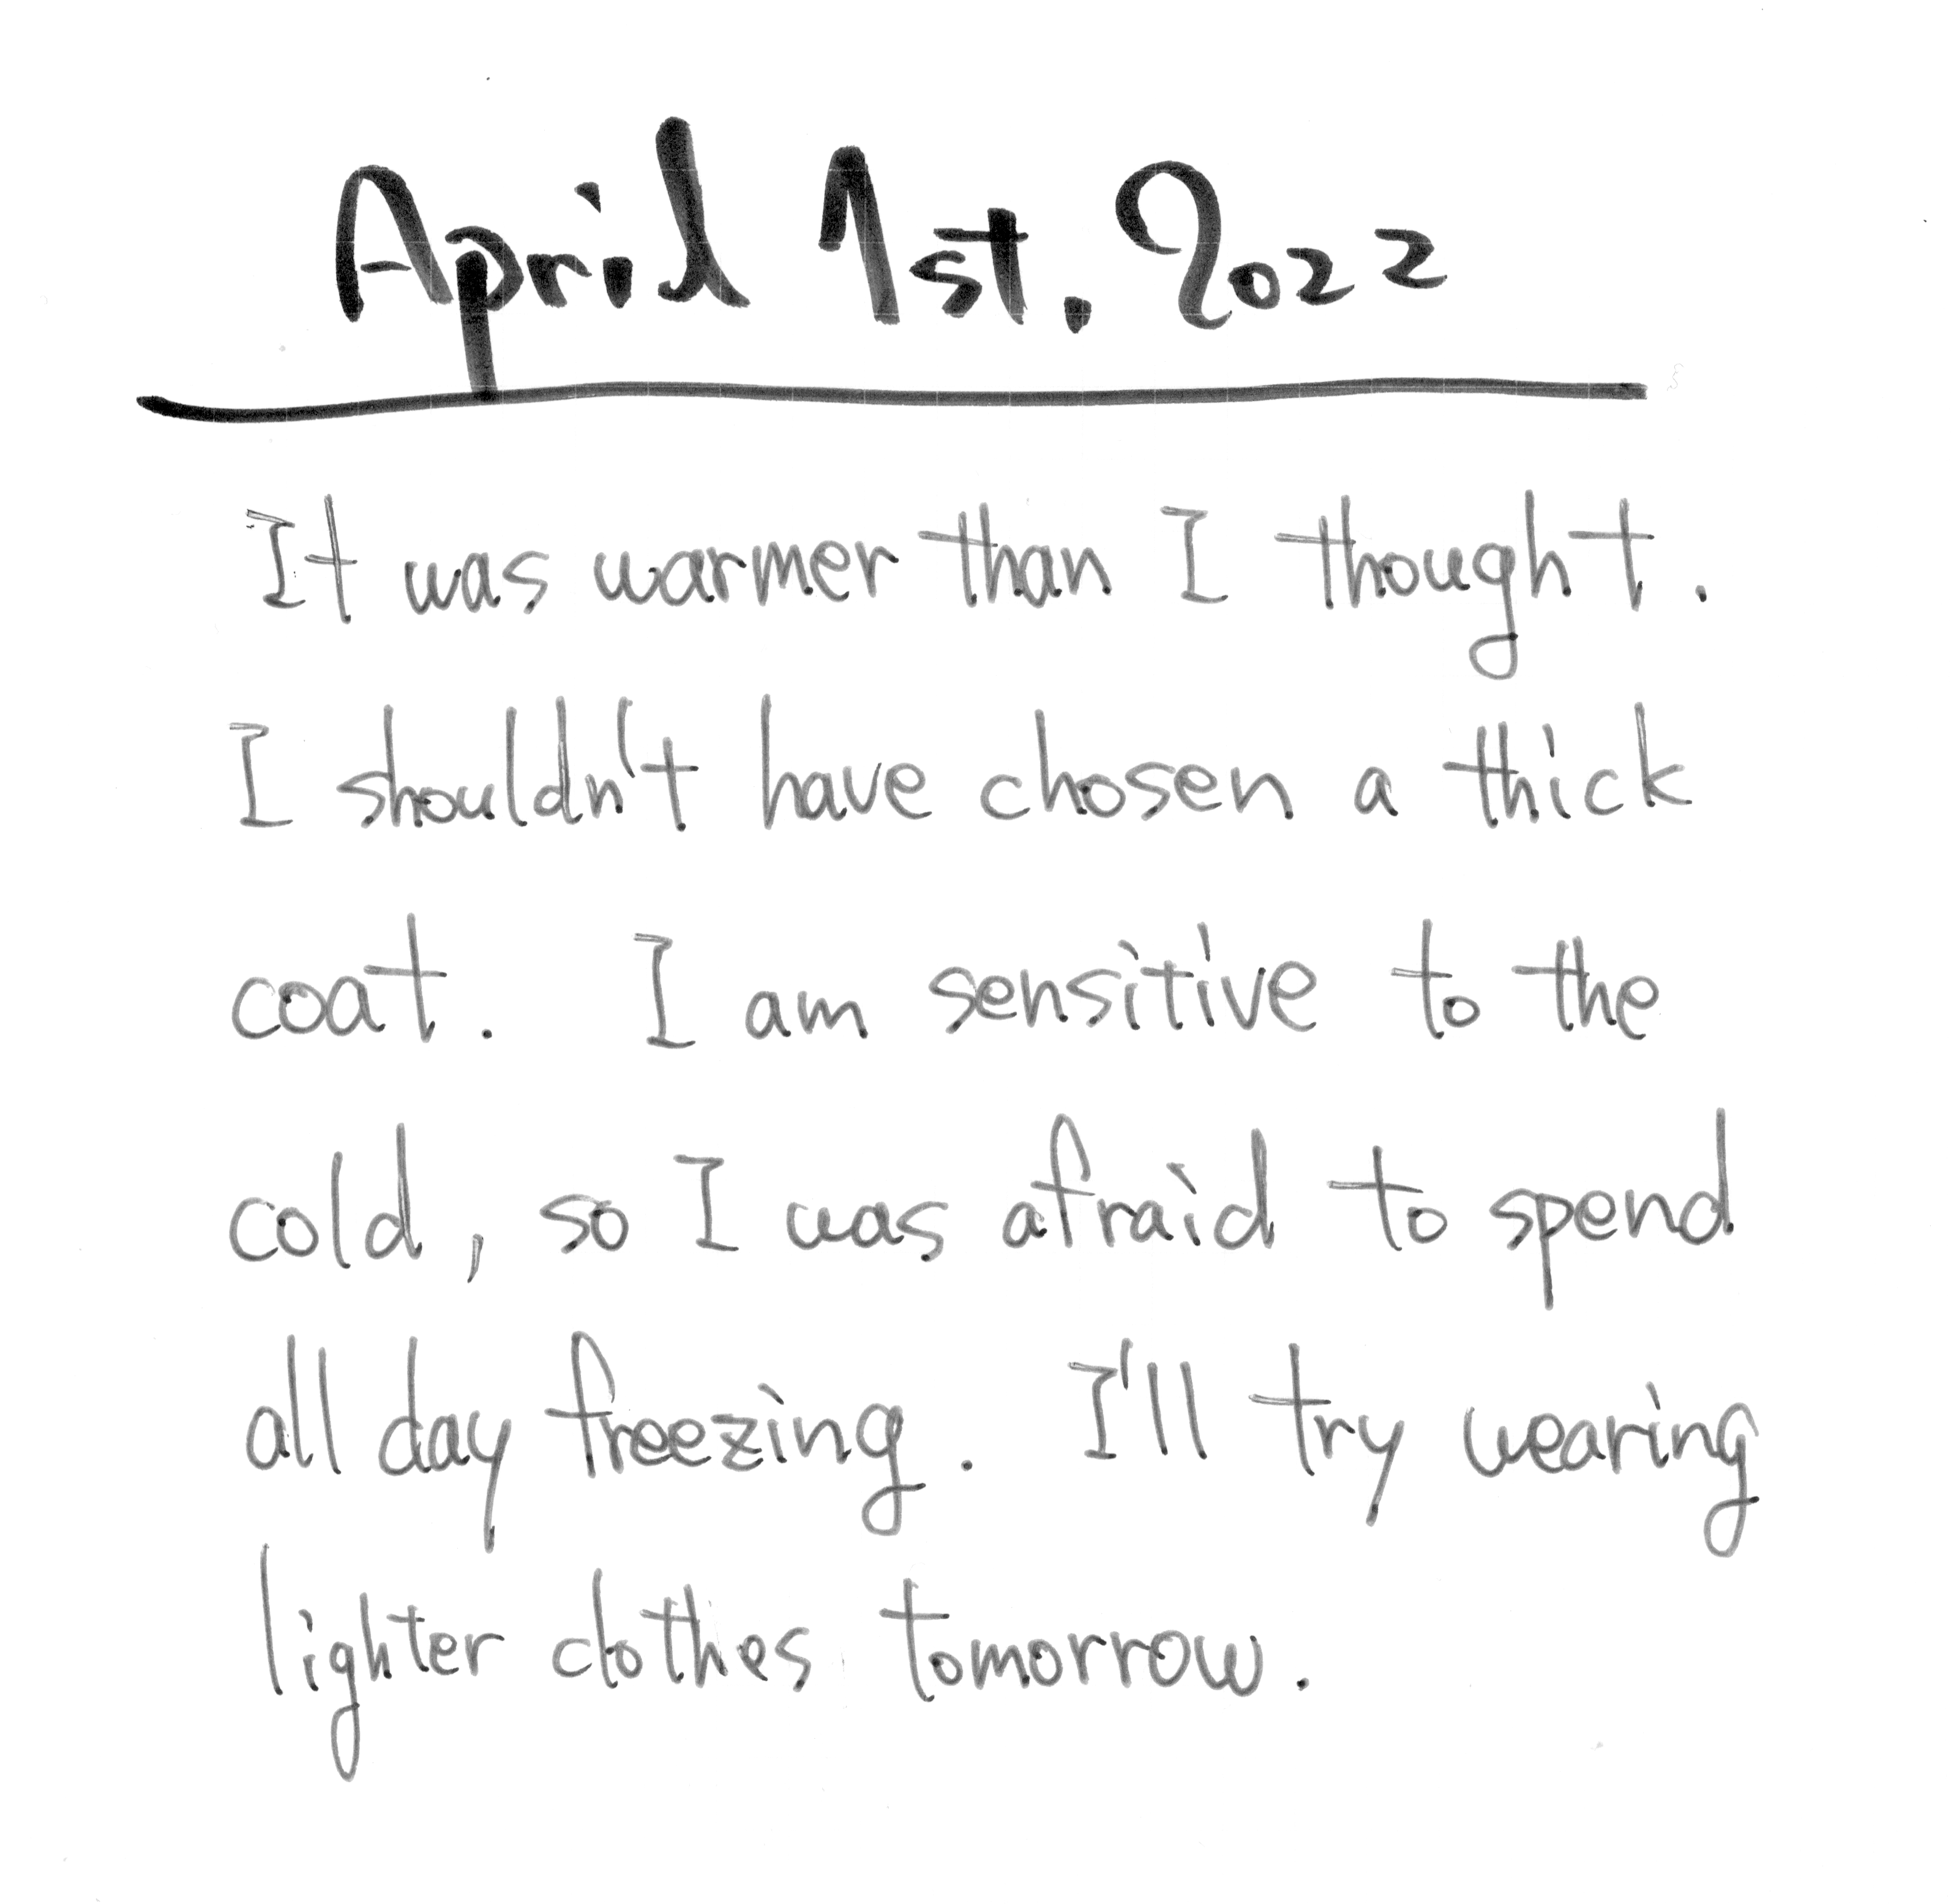 April 1st. 2022
It was warmer than I thought.
I shouldn't have chosen a thick
coat. I am sensitive to the
cold, so I was afraid to spend
all day freezing. I'll try wearing
lighter clothes tomorrow.